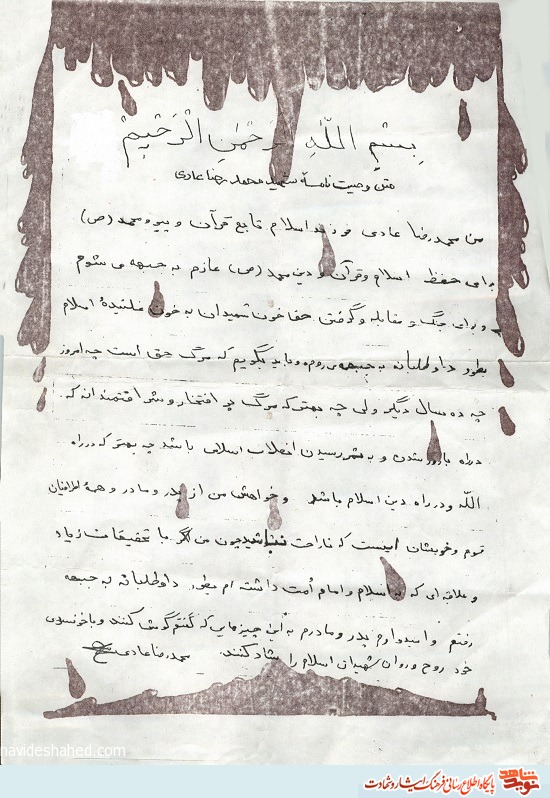 بِسْمِ اللّهِ الرَحْمٰنِ الْرَحْیٖمْ
متن وصیت نامهٔ شهید محمد رضا عادی
من محمد رضا عادی فرزند اسلام تابع قرآن و پیرو محمد (ص)
برای حفظ اسلام و قرآن و دین محمد (ص) عازم به جبهه می شوم
و برای جنگ و مقابله و گرفتن حق خون شهیدان به خون غلتیدهٔ اسلام
بطور داوطلبانه به جبهه می روم و باید بگویم که مرگ حق است چه امروز
چه ده سال دیگر ولی چه بهتر که مرگ پر افتخار و شرافتمندانه که
در راه بارور شدن و به ثمر رسیدن انقلاب اسلامی باشد چه بهتر که در راه
اللّه و در راه دین اسلام باشد و خواهش من از پدر و مادر و همهٔ اطرافیان
قوم و خویشان اینست که ناراحت نباشید چون من اگر با تحقیقات زیاد
و علاقه ای که به اسلام و امام اُمت داشته ام بطور داوطلبانه به جبهه
رفتم و امیدوارم پدر و مادرم به این چیزهایی که گفتم گوش کنند و با خونسردی
خود روح و روان شهیدان اسلام را شاد کنند. محمد رضا عادی
navideshahed.com
نوید شاهد
پایگاه اطلاع رسانی فرهنگ ایثار و شهادت